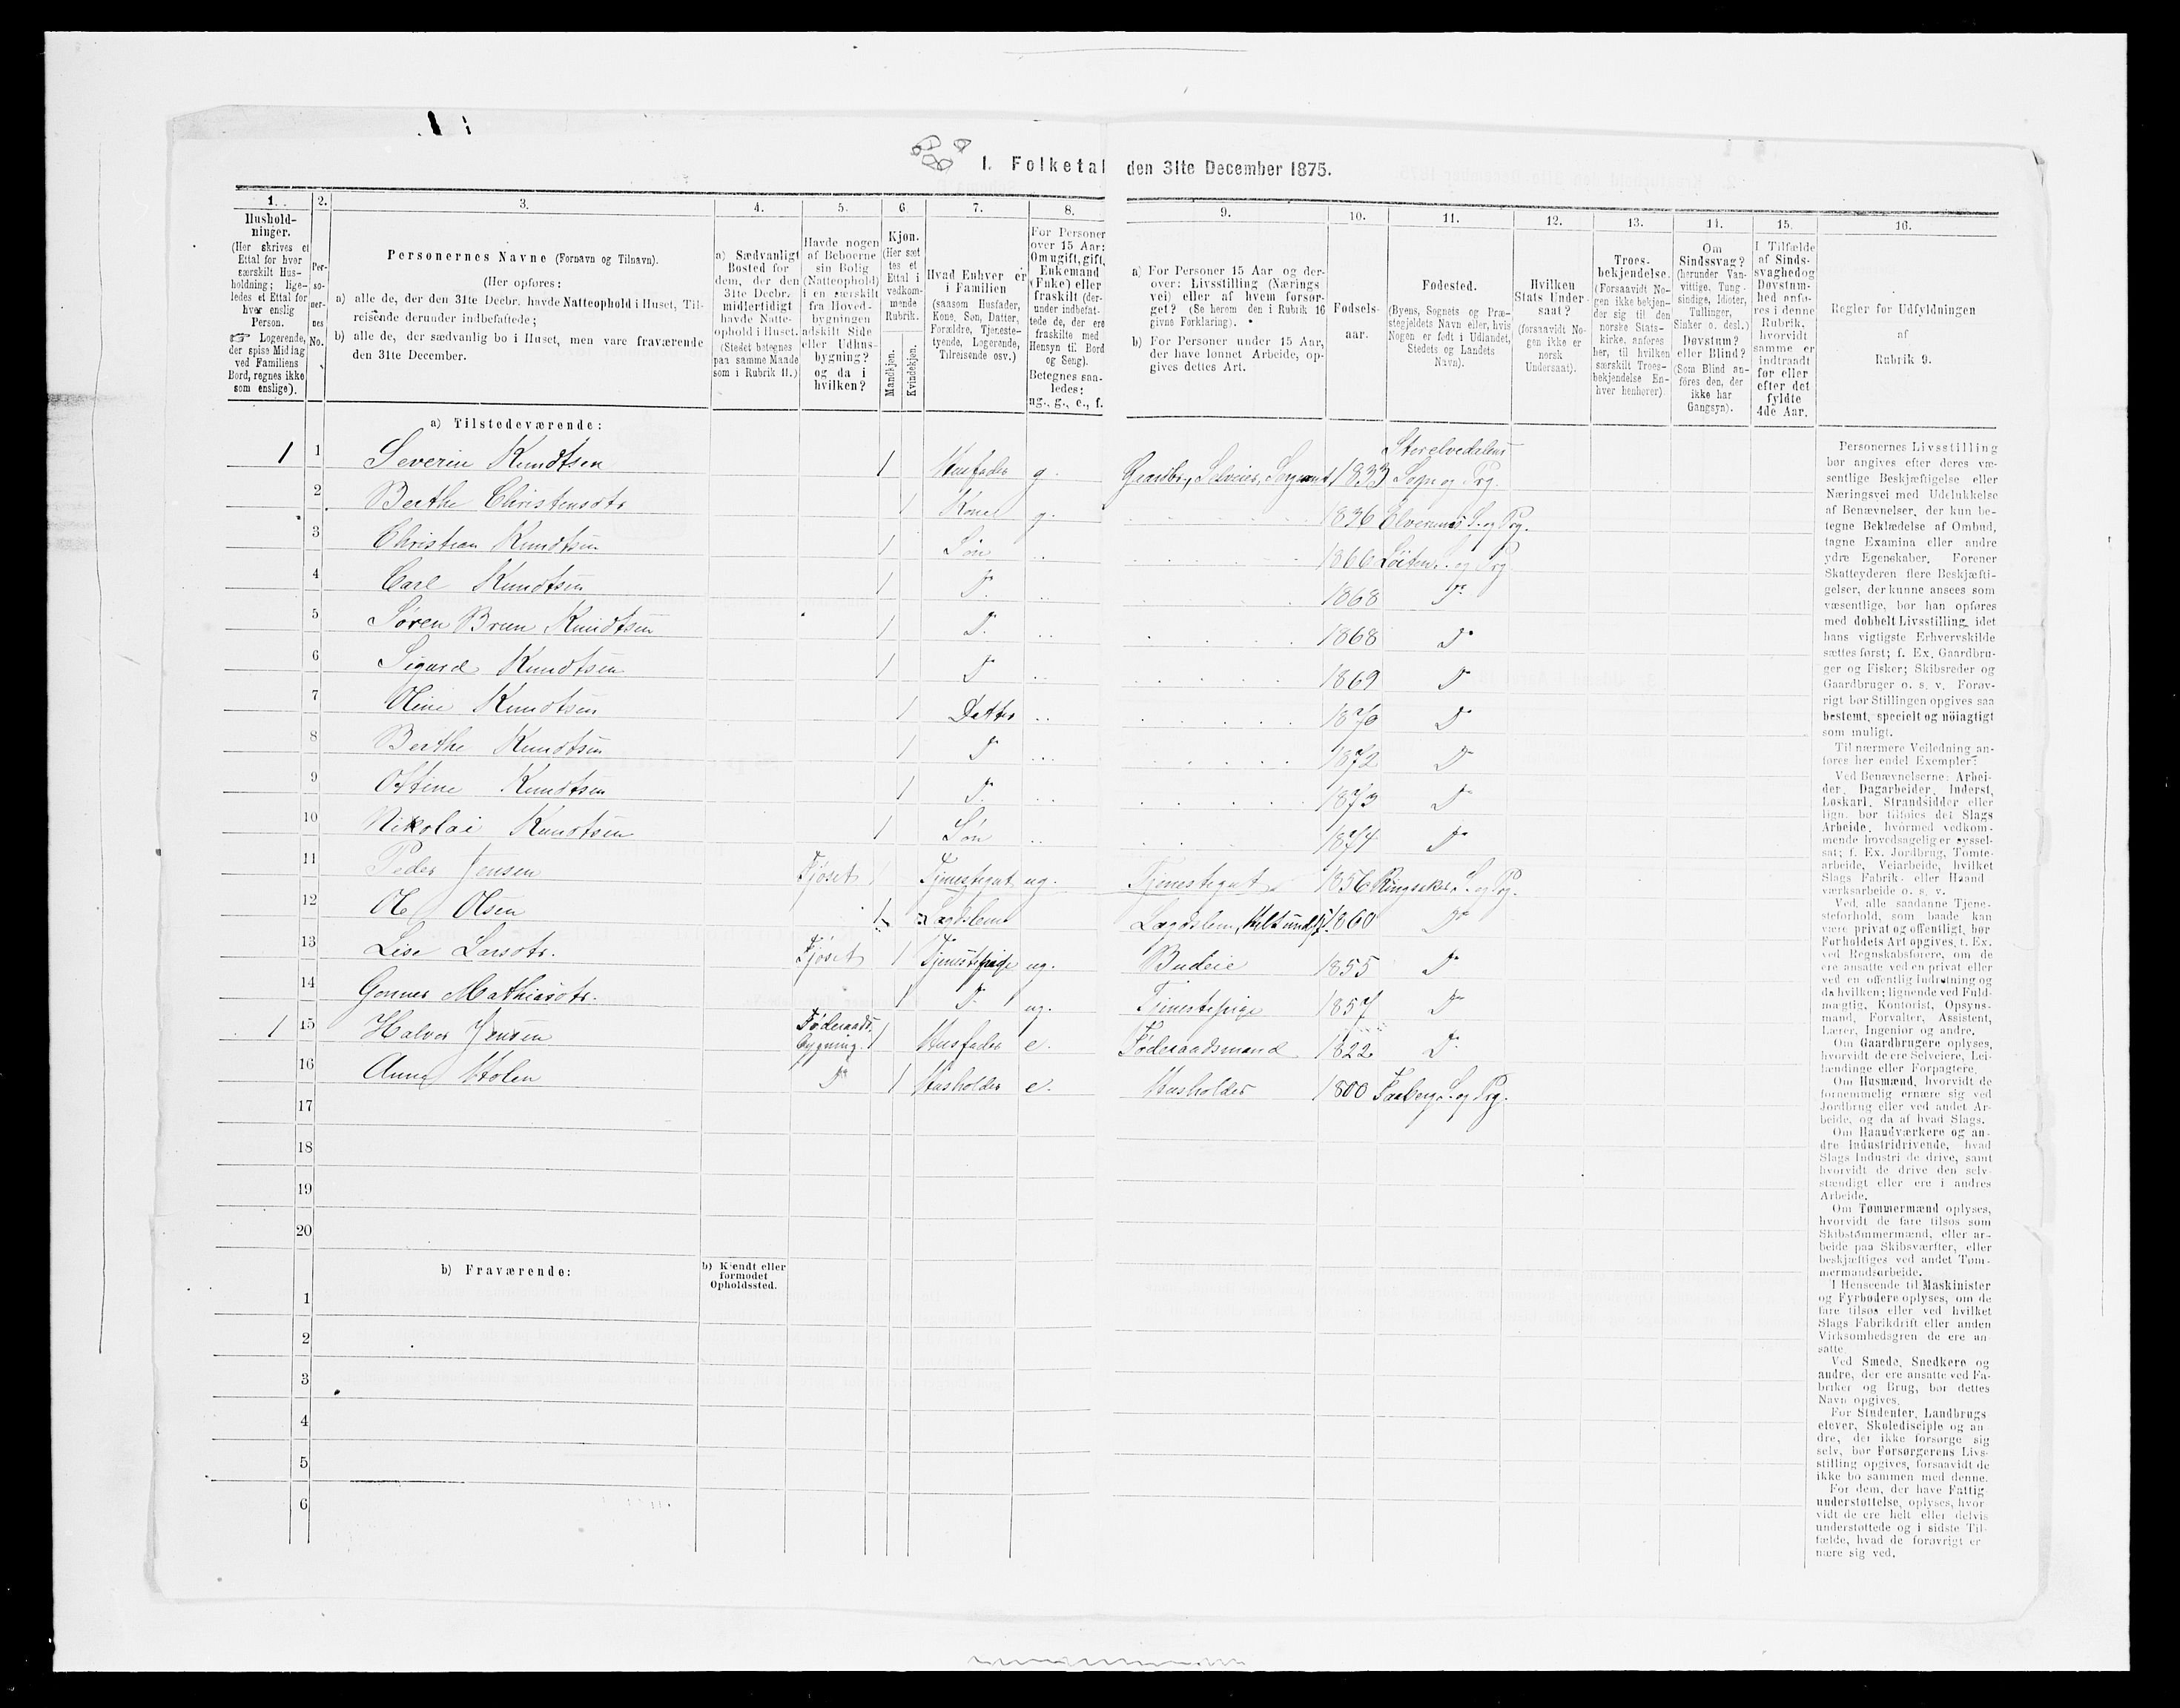 I. Folketal den 31te December 1875.
1. 2. 3. 4. 5. 6 7. 8. 9. 10. 11. 12. 13. 14. 15. 16.
Hushold-
ninger.
(Her skrives et
Ettal for hver
særskilt Hus-
holdning; lige-
ledes et Ettal for
hver enslig
Person.
☞ Logerende,
der spise Middag
ved Familiens
Bord, regnes ikke
som enslige).
Per-
so-
ner-
nes
No.
Personernes Navne (Fornavn og Tilnavn).
(Her opføres:
a) alle de, der den 31te Decbr. havde Natteophold i Huset, Til-
reisende derunder indbefattede;
b) alle de, der sædvanlig bo i Huset, men vare fraværende
den 31te December.
a) Sædvanligt
Bosted for
dem, der den
31te Decbr.
midlertidigt
havde Natte-
ophold i Huset.
(Stedet betegnes
paa samme Maade
som i Rubrik 11.)
Havde nogen
af Beboerne
sin Bolig
(Natteophold)
i en særskilt
fra Hoved-
bygningen
adskilt Side
eller Udhus-
bygning?
og da i
hvilken?
Kjøn.
(Her sæt
tes et
Ettal i
vedkom-
mende
Rubrik.
Mandkjøn.
Kvindekjøn.
Hvad Enhver er
i Familien
(saasom Husfader,
Kone, Søn, Datter,
Forældre, Tjeneste-
tyende, Logerende,
Tilreisende osv.)
For Personer
over 15 Aar:
Om ugift, gift,
Enkemand
(Enke) eller
fraskilt (der-
under indbefat-
tede de, der ere
fraskilte med
Hensyn til Bord
og Seng).
Betegnes saa-
ledes:
ug., g., e., f.
a) For Personer 15 Aar og der-
over: Livsstilling (Nærings
vei) eller af hvem forsør-
get? (Se herom den i Rubrik 16
givne Forklaring).
b) For Personer under 15 Aar,
der have lønnet Arbeide, op-
gives dettes Art.
Fødsels-
aar.
Fødested.
(Byens, Sognets og Præ-
stegjeldets Navn eller, hvis
Nogen er født i Udlandet,
Stedets og Landets
Navn).
Hvilken
Stats Under-
saat?
(forsaavidt No-
gen ikke er
norsk
Undersaat).
Troes-
bekjendelse.
(Forsaavidt No-
gen ikke bekjen-
der sig til den
norske Stats-
kirke, anføres
her, til hvilken
særskilt Troes-
bekjendelse En-
hver henhører).
Om
Sindssvag?
(herunder Van-
vittige, Tung-
sindige, Idioter,
Tullinger,
Sinker o. desl.)
Døvstum?
eller Blind?
(Som Blind an-
føres den, der
ikke har
Gangsyn).
I Tilfælde
af Sinds-
svaghed og
Døvstum-
hed anfø-
res i denne
Rubrik,
hvorvidt
samme er
indtraadt
før eller
efter det
fyldte
4de Aar.
Regler for Udfyldningen
af
Rubrik 9.
a) Tilstedeværende:
1 1 Severin Knudtsen 1 Husfader g. Gaardbr., Selveier, Sergeant 1833 Storelvedalens Sogn og Prg.
2 Berthe Christensdtr 1 Kone g. 1836 Elverums S. og Prg.
3 Christian Knudtsen 1 Søn .. 1866 Løiten S. og Prg
4 Carl Knudtsen 1 Do. .. 1868 Do
5 Søren Brun Knudtsen 1 Do. .. 1868 Do
6 Sigurd Knudtsen 1 Do .. 1869 Do
7 Oline Knudtsen 1 Datter .. 1870 Do
8 Berthe Knudtsen 1 Do ... 1872 Do
9 Ottine Knudtsen 1 Do. .. 1873 Do
10 Nikolai Knudtsen 1 Søn .. 1874 Do
11 Peder Jensen Fjøset 1 Tjenestegut ug. Tjenestegut 1856 Ringsaker S. og Prg.
12 Ole Olsen 1 Lægdslem Lægdslem, 1860 Do
13 Lise Larsdtr. Fjøset 1 Tjenestepige ug. Budeie 1855 Do
14 Mathiasdtr. 1 Do. ug. Tjenestepige 1857 Do
1 15 Halvor Jensen Føderaads-bygning. 1 Husfader e. Føderaadsmand 1822 Do
16 Anna Holen Do 1 Husholder e. Husholder 1800 Faaberg S. og Prg.
17
18
19
20
b) Fraværende:
b) Kjendt eller
formodet
Opholdssted.
1
2
3
4
5
6
Personernes Livsstilling
bør angives efter deres væ-
sentlige Beskjæftigelse eller
Næringsvei med Udelukkelse
af Benævnelser, der kun be-
tegne Beklædelse af Ombud,
tagne Examina eller andre
ydre Egenskaber. Forener
Skatteyderen flere Beskjæfti-
gelser, der kunne ansees som
væsentlige, bør han opføres
med dobbelt Livsstilling, idet
hans vigtigste Erhvervskilde
sættes først; f. Ex. Gaardbru-
ger og Fisker; Skibsreder og
Gaardbruger o. s. v. Forøv-
rigt bør Stillingen opgives saa
bestemt, specielt og nøiagtigt
som muligt.
Til nærmere Veiledning an-
føres her endel Exempler:
Ved Benævnelserne: Arbei-
der, Dagarbeider, Inderst,
Løskarl, Strandsidder eller
lign. bør tilføies det Slags
Arbeide, hvormed vedkom-
mende hovedsagelig er syssel-
sat; f. Ex. Jordbrug, Tomte-
arbeide, Veiarbeide, hvilket
Slags Fabrik- eller Haand
værksarbeide o. s. v.
Ved alle saadanne Tjene-
steforhold, som baade kan
være privat og offentligt, bør
Forholdets Art opgives, t. Ex.
ved Regnskabsførere, om de
ere ansatte ved en privat eller
ved en offentlig Indretning og
da hvilken; lignende ved Fuld-
mægtig, Kontorist, Opsyns-
mand, Forvalter, Assistent,
Lærer, Ingeniør og andre.
Om Gaardbrugere oplyses,
hvorvidt de ere Selveiere, Lei-
lændinge eller Forpagtere.
Om Husmænd, hvorvidt de
fornemmelig ernære sig ved
Jordbrug eller ved andet Ar-
beide, og da af hvad Slags.
Om Haandværkere og an-
dre Industridrivende, hvad
Slags Industri de drive, samt
hvorvidt de drive den selv-
stændigt eller ere i andres
Arbeide.
Om Tømmermænd oplyses,
hvorvidt de fare tilsøs som
Skibstømmermænd, eller ar-
beide paa Skibsværfter, eller
beskjæftiges ved andet Tøm-
mermandsarbeide.
I Henseende til Maskinister
og Fyrbødere oplyses, om de
fare tilsøs eller ved hvilket
Slags Fabrikdrift eller anden
Virksomhedsgren de ere an-
satte.
Ved Smede, Snedkere og
andre, der ere ansatte ved Fa-
briker og Brug, bør dettes
Navn opgives.
For Studenter, Landbrugs
elever, Skoledisciple og an
dre, der ikke forsørge sig
selv, bør Forsørgerens Livs-
stilling opgives, forsaavidt de
ikke bo sammen med denne.
For dem, der have Fattig
understøttelse, oplyses, hvor
vidt de ere helt eller delvis
understøttede og i sidste Til-
fælde, hvad de forøvrigt er
nære sig ved.